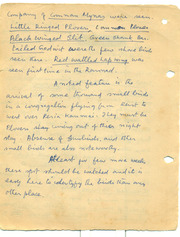 Company of Common Mynas were seen
Little Ringed Plover, Common Plover
Black winged Stilt, Green Shank
tailed Godwit were the few shore birds
seen here. Red wattled Lapwing was
seen first time in the
A marked feature is the
arrival of some thousand small birds
in a congregation flying from East to
west over They must be
Plovers
day. Absence of and other
small birds are also noteworthy.
Atleast for few more weeks
there spot should be watched and it is
easy here to identify the birds than any
other place.